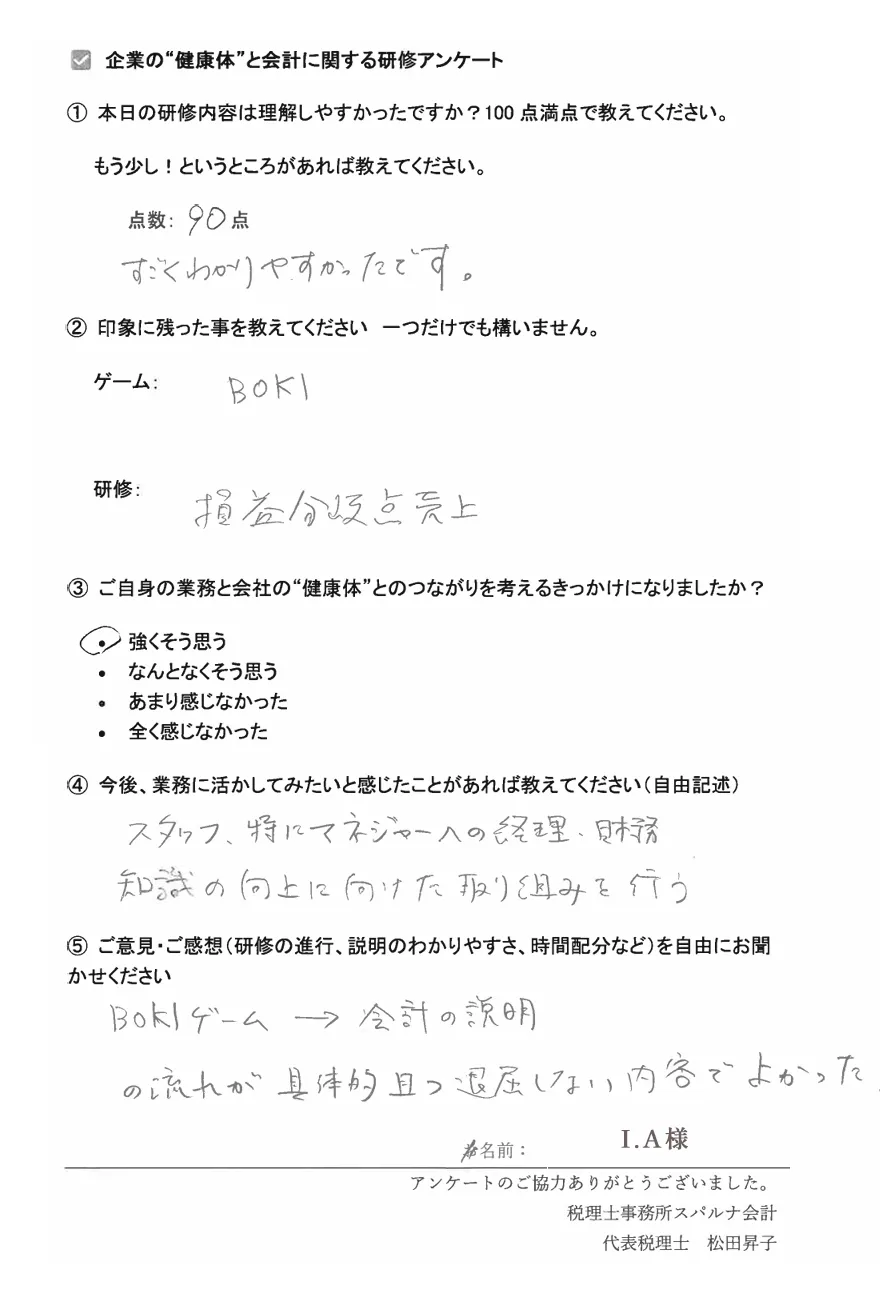 企業の“健康体”と会計に関する研修アンケート
① 本日の研修内容は理解しやすかったですか？100 点満点で教えてください。
もう少し！というところがあれば教えてください。
点数： 90 点
すごくわかりやすかったです。
② 印象に残った事を教えてください　一つだけでも構いません。
ゲーム： BOKI
研修： 損益分岐点売上
③ ご自身の業務と会社の“健康体”とのつながりを考えるきっかけになりましたか？
• 強くそう思う
• なんとなくそう思う
• あまり感じなかった
• 全く感じなかった
④ 今後、業務に活かしてみたいと感じたことがあれば教えてください（自由記述）
スタッフ、特にマネジャーへの経理・財務
知識の向上に向けた取り組みを行う
⑤ ご意見・ご感想（研修の進行、説明のわかりやすさ、時間配分など）を自由にお聞
かせください
BOKIゲーム → 会計の説明
の流れが具体的且つ退屈しない内容でよかった
名前： I.A様
アンケートのご協力ありがとうございました。
税理士事務所スパルナ会計
代表税理士　松田昇子